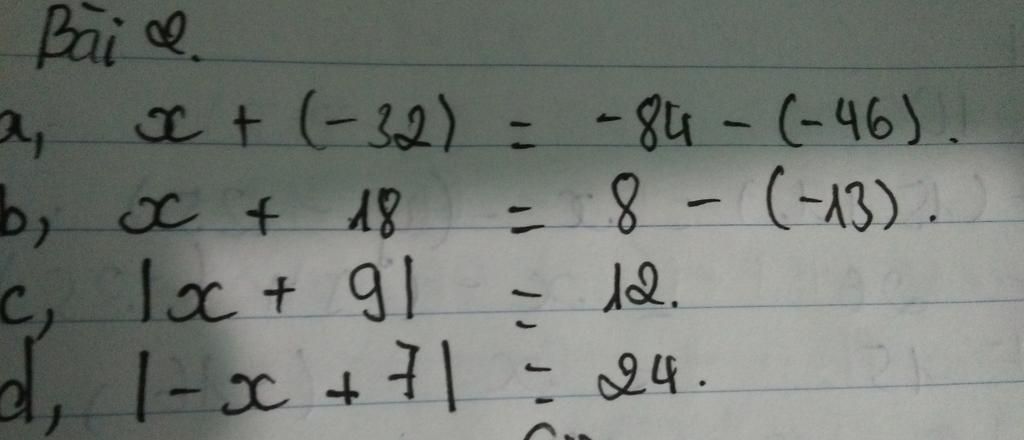 Bài 2.
a, x + (-32) = -84 - (-46).
b, x + 18 = 8 - (-13).
c, |x + 9| = 12.
d, |-x + 7| = 24.